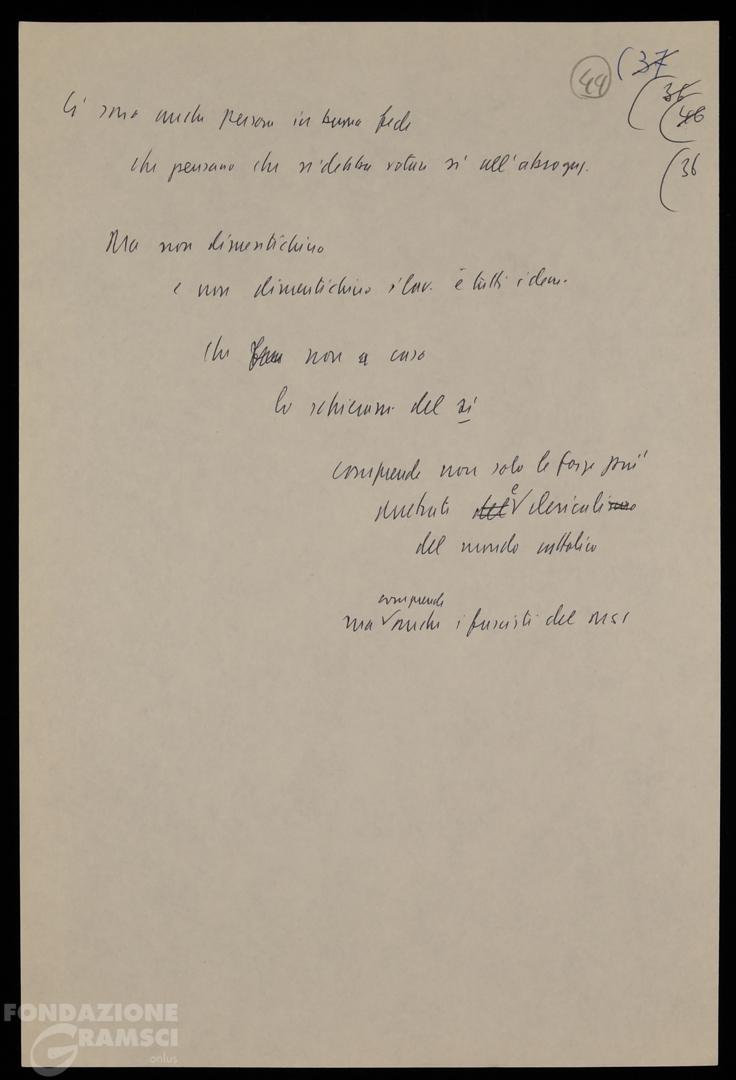 44
(37
(35
(46
(36
Ci sono anche persone in buona fede
che pensano che si debba votare sì all'abrogaz.
Ma non dimentichino
e non dimentichino i lav. e tutti i dem.
che non a caso
lo schieram. del sì
comprende non solo le forze più
arretrate e clericali
del mondo cattolico
ma comprende anche i fascisti del MSI
FONDAZIONE
GRAMSCI
onlus